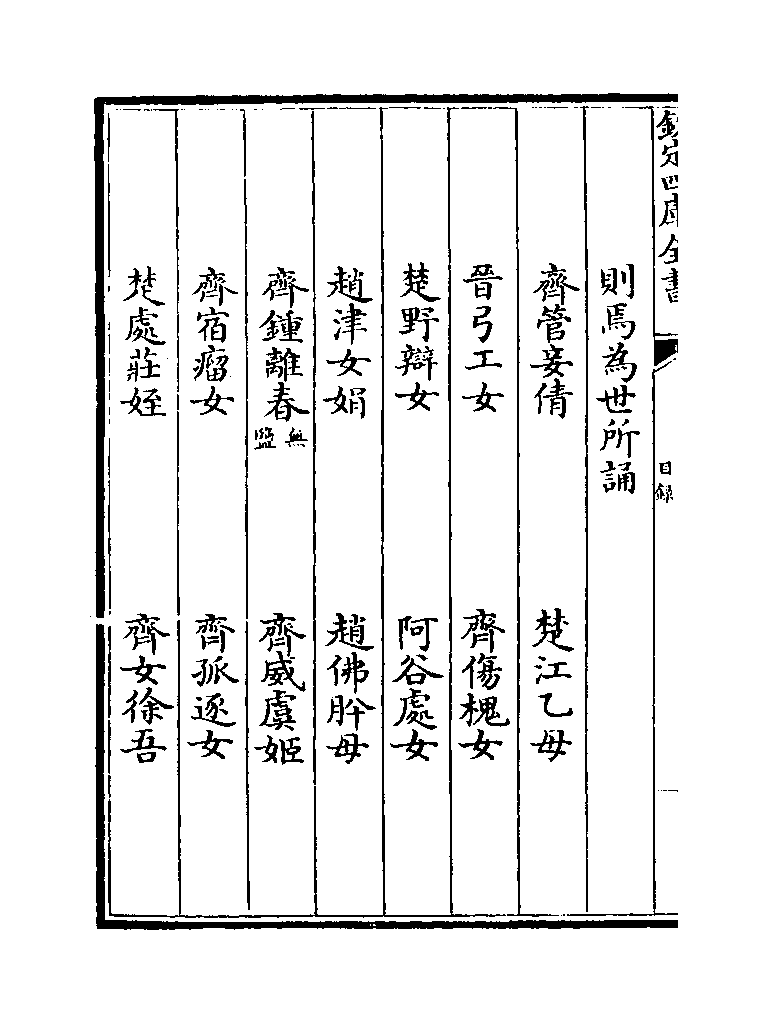 欽定四庫全書
目録
則焉為世所誦
齊管妾倩　楚江乙母
晉弓工女　齊傷槐女
楚野辯女　阿谷處女
趙津女娟　趙佛肸母
齊鍾離春無鹽　齊威虞姬
齊宿瘤女　齊孤逐女
楚處莊姪　齊女徐吾